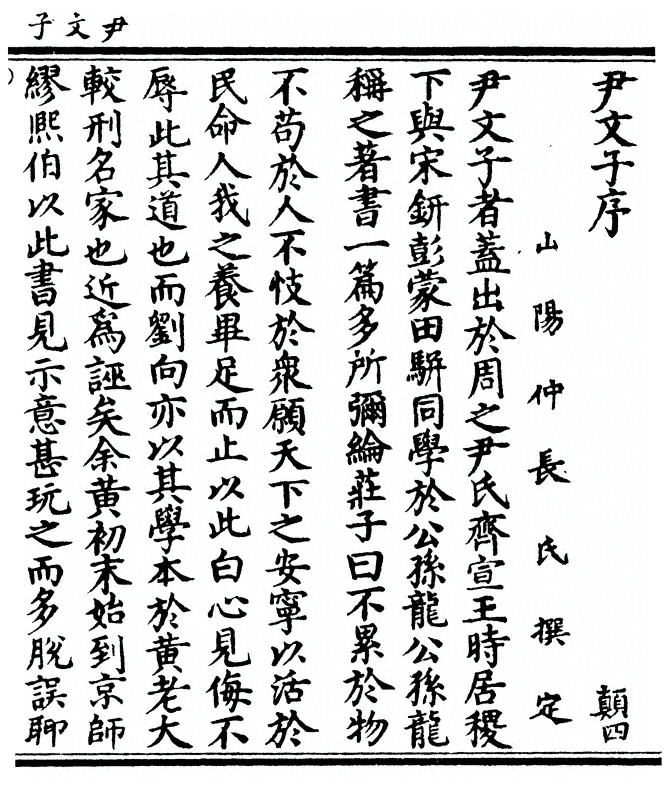 尹文子
尹文子序
顛四
山陽仲長氏撰定
尹文子者蓋出於周之尹氏齊宣王時居稷
下與宋鈃彭蒙田駢同學於公孫龍公孫龍
稱之著書一篇多所彌綸莊子曰不累於物
不苟於人不忮於衆願天下之安寧以活於
民命人我之養畢足而止以此白心見侮不
辱此其道也而劉向亦以其學本於黃老大
較刑名家也近爲誣矣余黃初末始到京師
繆熙伯以此書見示意甚玩之而多脫誤聊